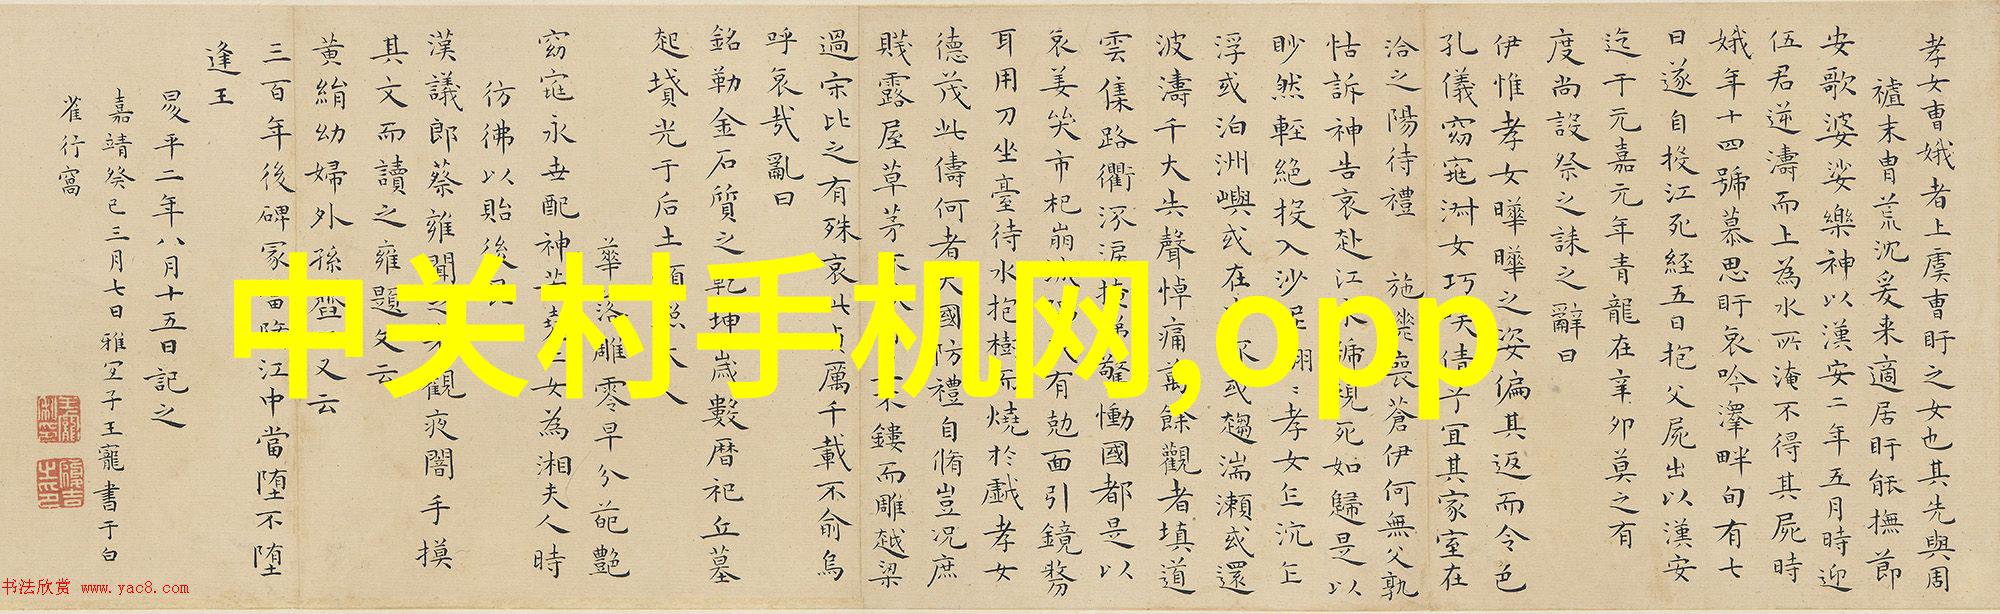 孝女曹娥者上虞曹盱之女也其先與周
末曺荒沈爰来適居盱能撫節
安歌婆娑樂神以漢安二年五月時迎
伍君逆濤而上為水所淹不得其屍時
娥年十四號慕思盱哀吟澤畔旬有七
日遂自投江死経五日抱父屍出以漢安
迄于元嘉元年青龍在辛卯莫之有
度尚設祭之誄之辭曰
伊惟孝女曄曄之姿偏其返而令色
孔儀窈窕淑女巧笑倩兮宜其家室在
洽之陽待禮 施 喪蒼伊何無父孰
怙訴神告哀赴江永號視死如歸是以
眇然輕絶投入沙泥翩〻孝女乍沉乍
浮或泊洲嶼或在 流或趨湍瀬或還
波濤千夫失聲悼痛萬餘觀者填道
雲集路衢 涙掩涕驚慟國都是以
哀姜哭市杞崩城 有勊面引鏡剺
耳用刀坐臺待水抱樹而燒於戯孝女
德茂此儔何者大國防禮自脩豈况庶
賎露屋草茅不 鏤而雕越梁
過宋比之有殊哀此貞厲千載不渝烏
呼哀哉亂曰
銘勒金石質之乾坤歳數暦祀丘墓
起墳光于后土顯照夫人
華落雕零早分葩艷
窈窕永世配神 女為湘夫人時
彷彿以貽後昆
漢議郎蔡雍聞之 觀夜闇手摸
其文而讀之雍題文云
黄絹幼婦外孫 又云
三百年後碑冢當墮江中當堕不堕
逢王
昇平二年八月十五日記之
嘉靖癸巳三月七日雅宜子王寵書于白
雀行窩
中关村手机网,opp
书法欣赏 www.yac8.com